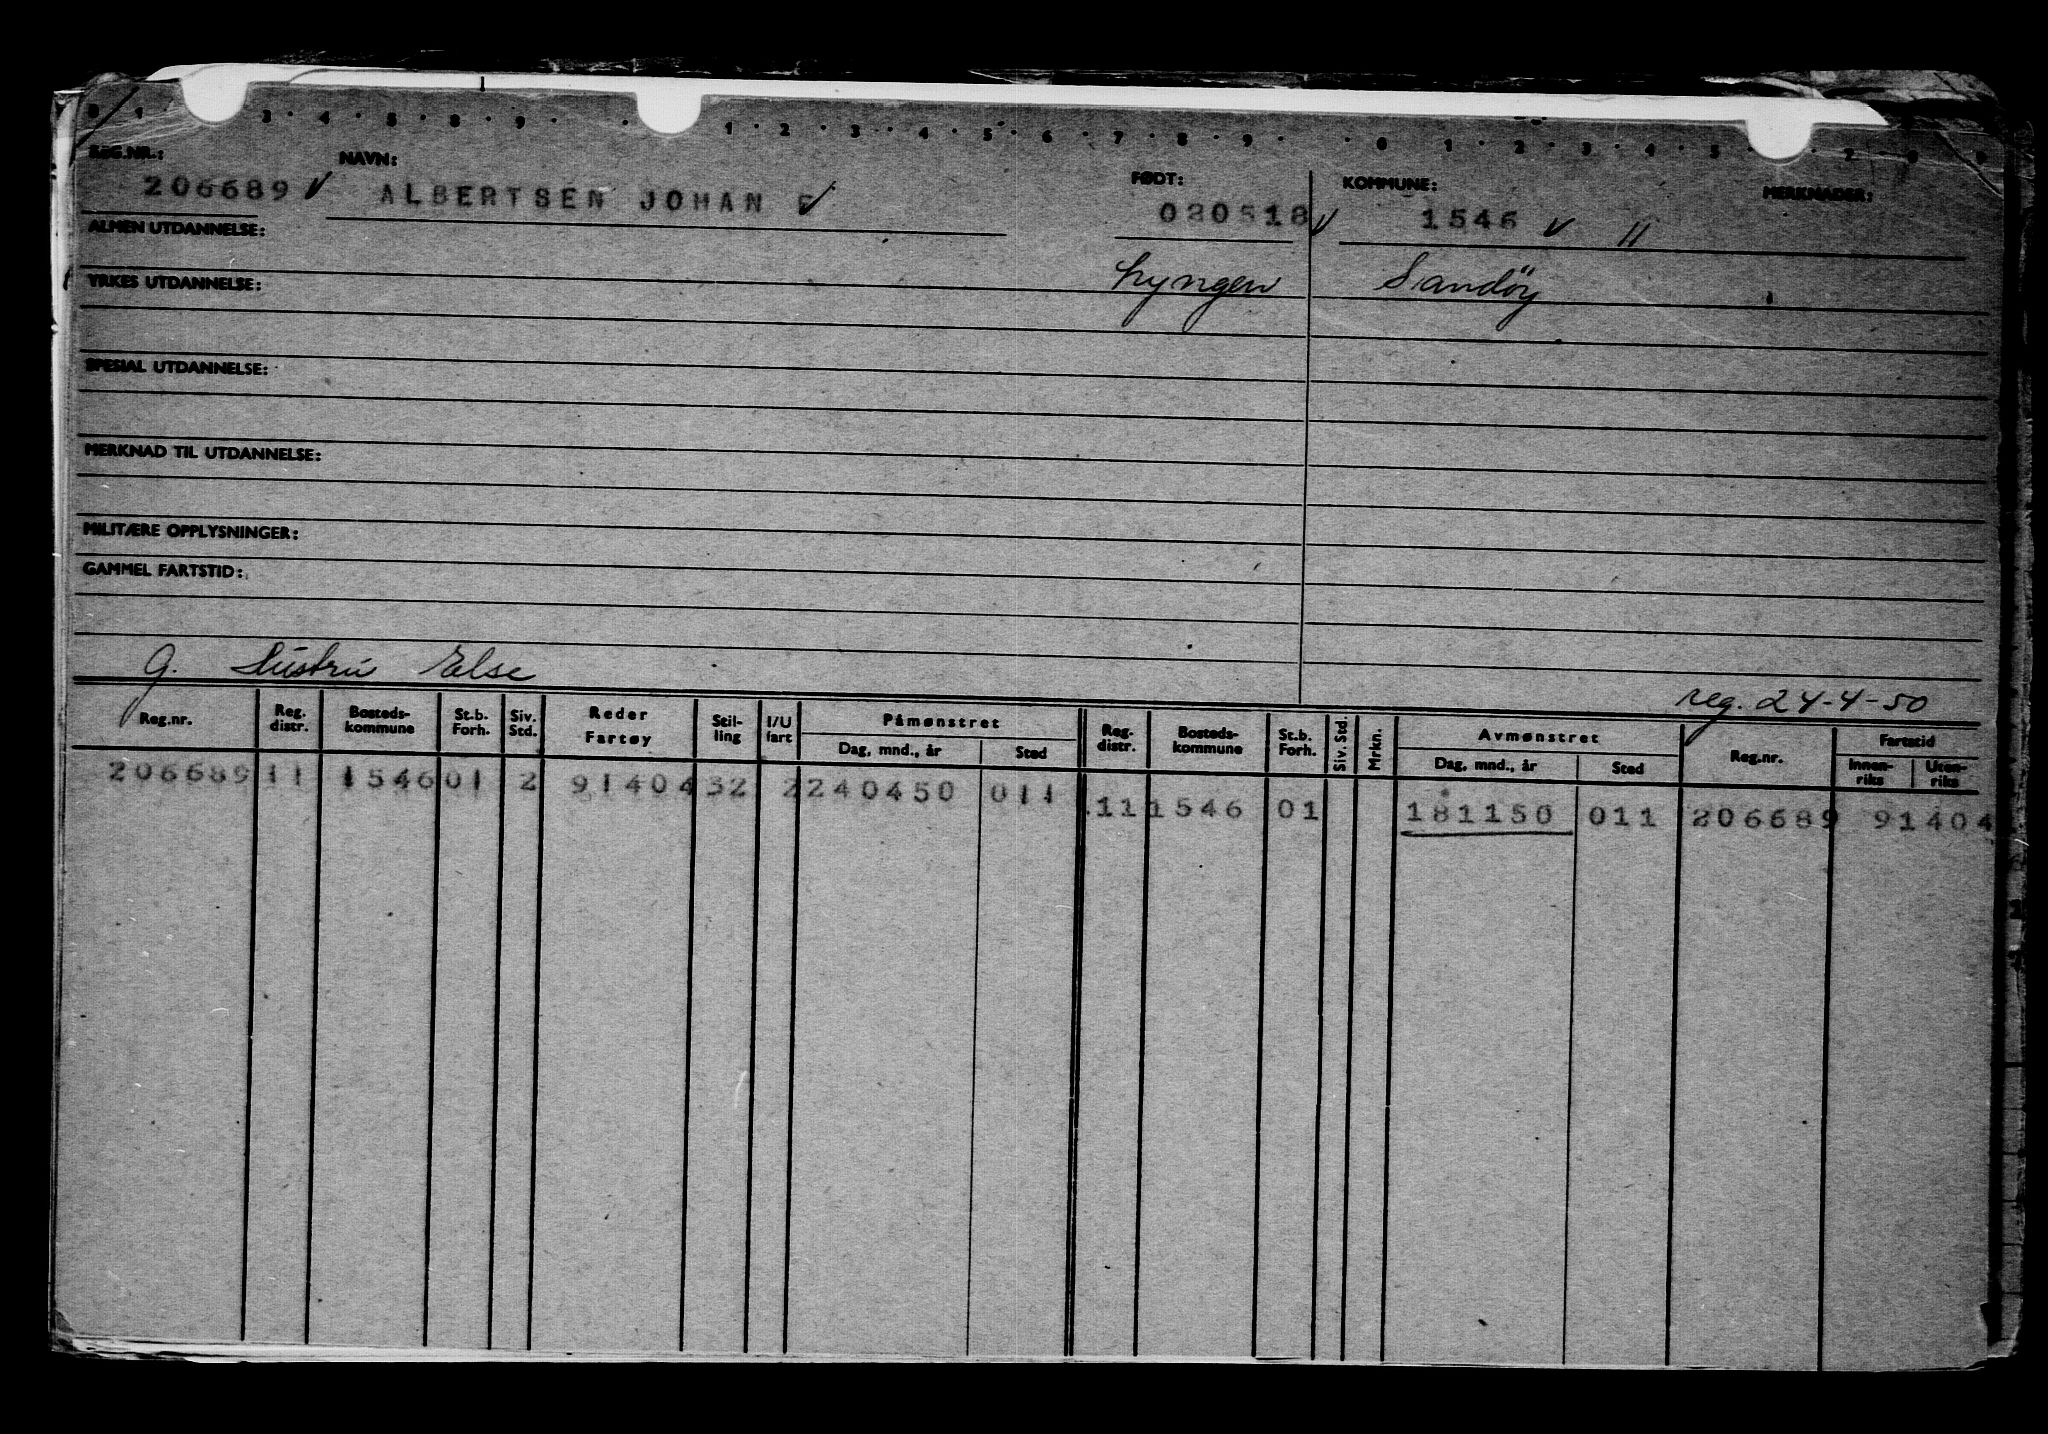 0 · 1 · 3 · 4 · 5 · 8 · 9 · · 1 · 2 · 3 · 4 · 5 · 6 · 7 · 8 · 9 · · 0 · 1 · 2 · 3 · 4 · 5 · 7 · 8 · 9
REG.NR.: NAVN: FØDT: KOMMUNE: MERKNADER:
206689 ✓ ALBERTSEN JOHAN ✓ ✓ 1546 ✓ 11
ALMEN UTDANNELSE:
Lyngen Sandöy
YRKES UTDANNELSE:
SPESIAL UTDANNELSE:
MERKNAD TIL UTDANNELSE:
MILITÆRE OPPLYSNINGER:
GAMMEL FARTSTID:
G. Hustru Else
reg. 24-4-50
Reg.nr. Reg. distr. Bosteds-kommune St.b. Forh. Siv. Std. Reder Fartøy Stil-ling I/U fart Påmønstret Dag, mnd., år Sted Reg. distr. Bosteds-kommune St.b. Forh. Siv. Std. Mrkn. Avmønstret Dag, mnd., år Sted Reg.nr. Fartstid Innen-riks Uten-riks
206689 11 1546 01 2 91404 32 2 240450 011
11 1546 01 181150 011 206689 91404